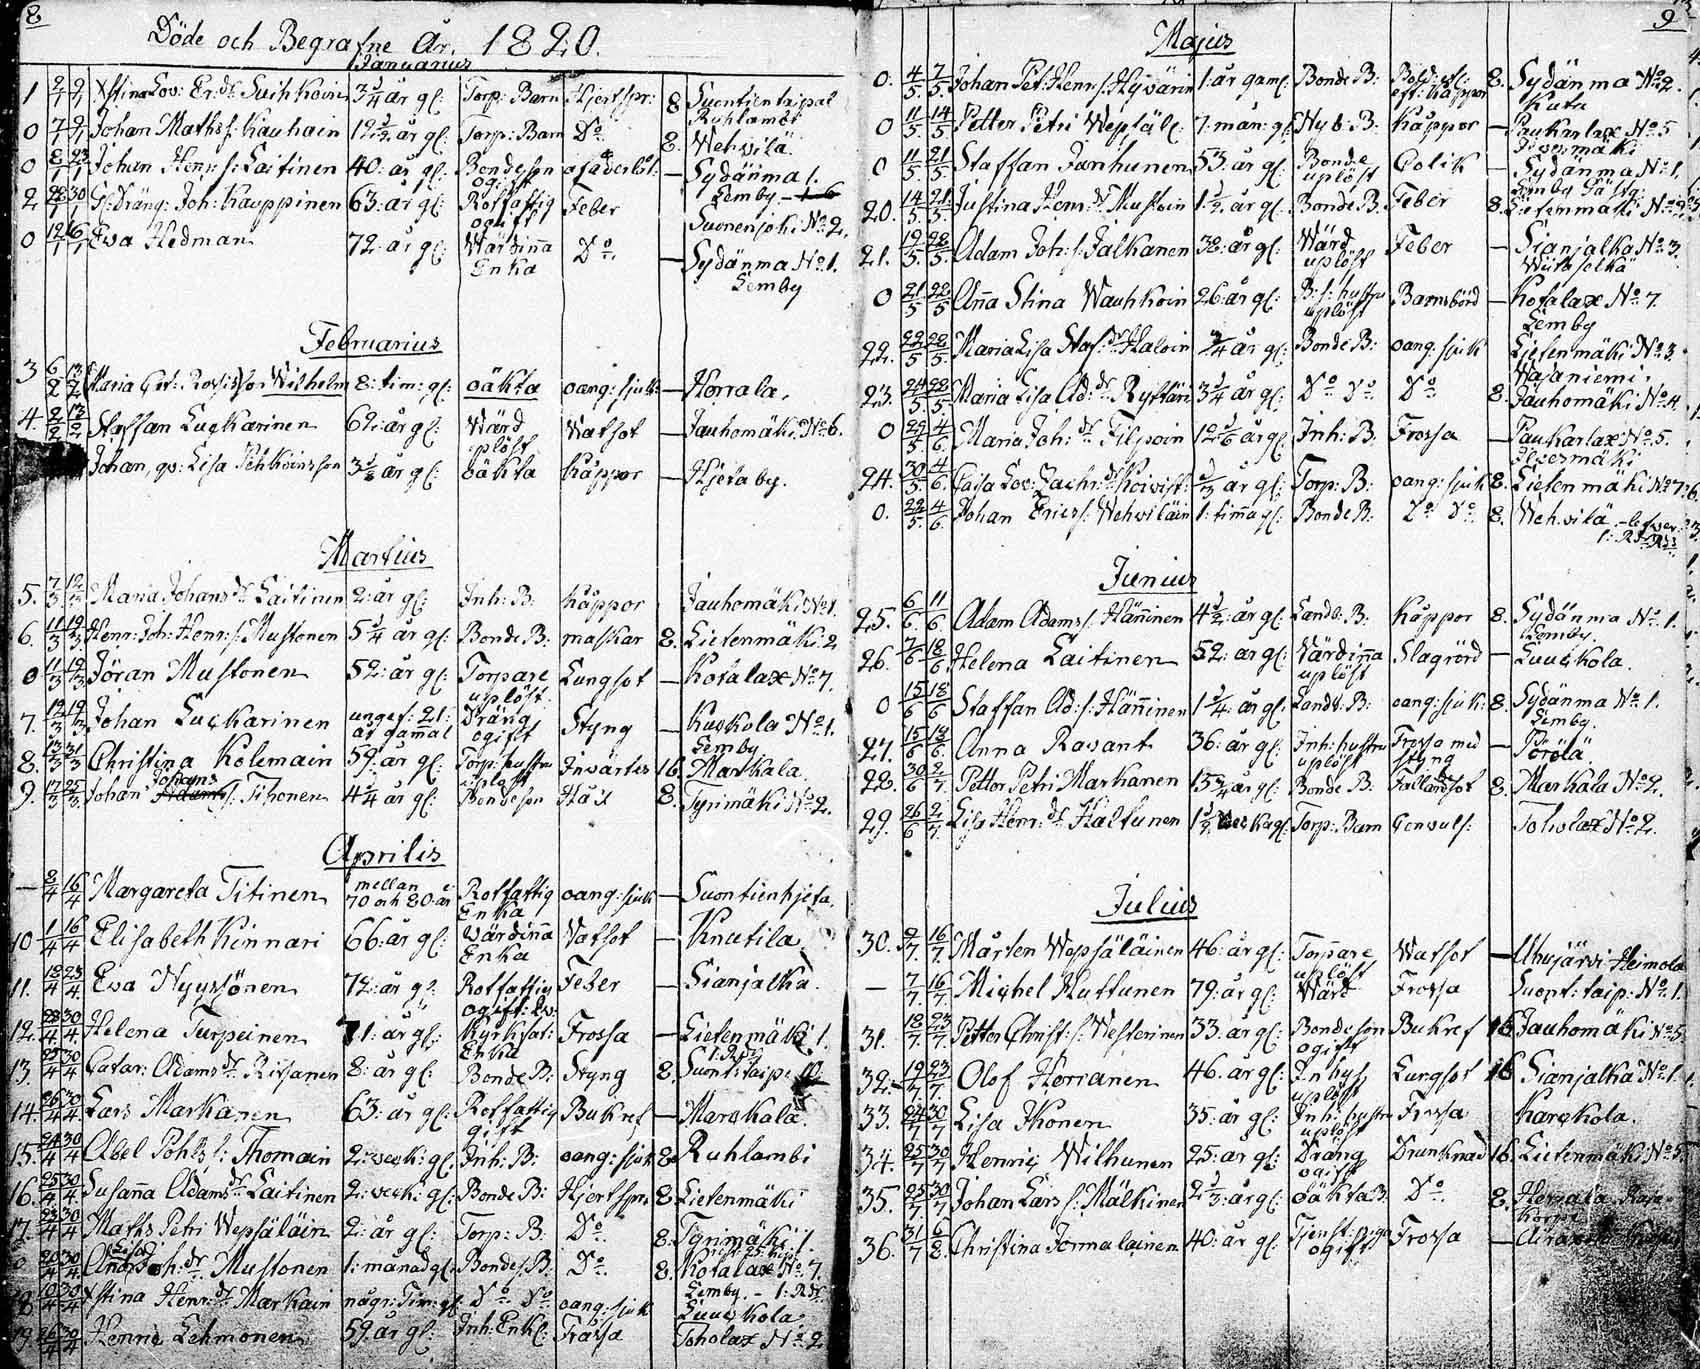 8
Döde och Begrafne År. 1820.
Januarius
1 2/1 9/1 Xstina Lov: Er: dr Suihkoin 3 1/4 år gl: Torp: Barn Hjertspr: 8 Suontientaipal
Ruhlambi
0 7/1 9/1 Johan Mathss: Kauhain 12 1/2 år gl: Torp: Barn Do 8. Wehvilä
0 8/1 23/1 Johan Henr: s: Laitinen 40: år gl: Bondeson — Sydänma 1.
ogift Lemby
2 22/1 30/1 Gl: Dräng: Joh: Kauppinen 63: år gl: Rotfattig Feber Suonenjoki No 2.
ogift
0 12/1 16/1 Ewa Hedman 72: år gl: Wärdinna Do. — Sydänma No 1.
Enka Lemby
Februarius
3 6/2 13/2 Maria son Wilhelm 8: tim: gl: oäkta oang: sjuk — Horrala.
4. 2/2 13/2 Staffan Luckarinen 62: år gl: Wärd Watsot — Jauhomäki No 6.
uplöst
Johan, qv: Lisa Pehkoins son 3 1/2 år gl: oäkta Kåppor — Hjetaby.
Martius
5. 7/3 12/3 Maria Johans dr Laitinen 2: år gl: Inh: B: Kåppor Jauhomäki No 1.
6. 11/3 19/3 Henr: Joh: Henr: s: Mustonen 5 1/4 år gl: Bonde B: maskar 8. Lietenmäki: 2
0 11/3 19/3 Jöran Mustonen 52: år gl: Torpare Lungsot — Kotalax No 7.
uplöst
7. 12/3 19/3 Johan Luckarinen ungef: 21: Dräng Styng Kuckola No 1.
år gammal ogift Lemby
8. 13/3 31/3 Christina Kolemain 59: år gl: Torp: hustru Invärtes 16. Markala.
uplöst
9. 17/3 25/3 Johan Johans s: Tihonen 4 1/4 år gl: Bondeson 8. Tyrimäki No 2.
Aprilis
— 8/4 16/4 Margareta Titinen mellan Rotfattig oang: sjuk — Suontienhjeta.
70 och 80: år Enka
10 1/4 16/4 Elisabeth Kinnari 66: år gl: Wärdinna Watsot — Knutila
Enka
11. 18/4 23/4 Ewa Nyyssönen 72: år g: Rotfattig Feber — Sianjalka.
ogift:
12. 23/4 30/4 Helena Turpeinen 71: år gl: Kyrkfat: Frossa — Lietenmäki 1.
Enka
13. 25/4 30/4 Catar: Adams dr Ritsanen 8: år gl: Bonde B: Styng 8. Suont: taip:
14. 26/4 30/4 Lars Markanen 63: år gl: Rotfattig Bukref — Marckala.
gift
15. 24/4 30/4 Abel Pohls s: Thomain 2: veck: gl: Inh: B: oang: sjuk 8. Ruhlambi
16. 25/4 30/4 Susanna Adams dr Laitinen 2: veck: gl: Bonde B: Hjertspr: 8 Lietenmäki
17. 23/4 30/4 Maths Petri Wepsäläin 2: år gl: Torp: B: Do. 8. Tyrimäki 1.
20/4 30/4 Joh: dr Mustonen 1: månad gl: Bonde B: Do. 8. Kotalax No 7.
Lemby. — 1: Rdr.
18 10/4 30/4 Xstina Henr: dr Markain någr: Tim: gl: Do Do oang: sjuk Luuckola
19. 26/4 30/4 Henric Lehmonen 59: år gl: Inh: Enkl: Frossa Toholax No 2
9
Majus
0. 4/5 7/5 Johan Pet: Henr: s: Hyvärin 1: år gaml: Bonde B: 8. Sydänma No 2.
eft: Kåppor Kuta
0 11/5 14/5 Petter Petri Wepsäl: 7: mån: gl: Nyb: B: Kåppor — Paukarlax No 5
Ilvesmäki
0 11/5 21/5 Staffan Janhunen 53: år gl: Bonde Colik — Sydänma No 1.
uplöst Lemby Gästg:
20. 14/5 21/5 Justina Hem: dr Mustoin 1 1/2 år gl: Bonde B: Feber 8. Lietenmäki No 2.
21. 19/5 28/5 Adam Joh: s: Jalkanen 38: år gl: Wärd Feber — Sianjalka No 3.
uplöst
0 21/5 28/5 Anna Stina Wauhkoin 26: år gl: B: s: hustru Barnsbörd — Kotalax No 7.
uplöst Lemby
22. 22/5 28/5 Maria Lisa Staf: dr Haloin 3/4 år gl: Bonde B: oang: sjuk Lietenmäki No 3.
Wajaniemi.
23. 24/5 28/5 Maria Lisa Ad: dr Ryttäri 3 1/4 år gl: Do Do Do 8. Jauhomäki No 4.
0 29/5 4/6 Maria Joh: dr Filpoin 12 1/6 år gl: Inh: B. Frossa — Paukarlax No 5.
Ilvesmäki
24. 30/5 4/6. Caisa Lov: Zachr: dr Koivist: 1/3 år gl: Torp: B: oang: sjuk 8. Lietenmäki No 7.
0. 22/5 4/6 Johan Erics s: Wehviläin 1: timma gl: Bonde B: Do Do. 8. Wehvilä
Junius
25. 6/6 11/6 Adam Adams s: Hänninen 4 1/2: år gl: Landb: B: Kåppor 8. Sydänma No 1.
Lemby.
26. 7/6 18/6 Helena Laitinen 52: år gl: Wärdinna Slagrörd — Luuckola.
uplöst
0 15/6 18/6 Staffan Ad: s: Hänninen 1 1/4: år gl: Landb: B: oang: sjuk: 8. Sydänma No 1.
Lemby.
27. 15/6 18/6. Anna Rasant 36: år gl: Inh: hustru Frossa med — Pörölä.
uplöst styng
28. 30/6 2/7 Petter Petri Markanen 13 3/4 år gl: Bonde B: Fallandsot 8. Markala No 2.
29. 26/6 2/7. Lisa Henr: dr Haltunen 1 1/2 vecka gl: Torp: Barn Convuls: Toholax No 2.
Julius
30. 9/7. 16/7. Mårten Wepsäläinen 46: år gl: Torpare Watsot — Ahujärvi Heimola
uplöst
— 7/7 16/7. Michel Huttunen 79: år gl: Wärd Frossa Suont: taip: No 1.
31. 18/7. 23/7. Petter Christ: s: Westerinen 33: år gl: Bondeson Bukref 16 Jauhomäki No 5.
ogift
32. 19/7 23/7. Olof Horianen 46. år gl: Inhys Lungsot 16 Sianjalka No 1.
uplöst
33. 24/7 30/7 Lisa Ikonen 35: år gl: Inh: hustru Frossa Karckola.
uplöst
34. 25/7 30/7 Henric Wilhunen 25: år gl: Dräng Drunknad 16. Lietenmäki No 5.
ogift
35. 25/7 30/7 Johan Lars s: Mälkinen 2 1/3: år gl: oäkta B: Do. 8. Horrala
36. 31/7 6/8. Christina Jormalainen 40: år gl: Tjenst: piga Frossa —
ogift